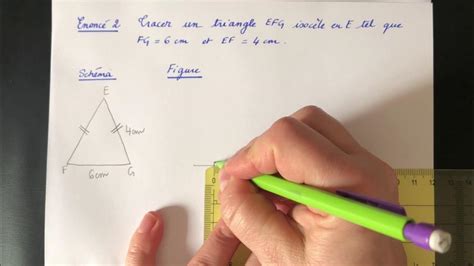 Enoncé 2 Tracer un triangle EFG isocèle en E tel que
FG = 6 cm et EF = 4 cm.
Schéma Figure
E
4cm
F 6cm G
0 8 9 10 11 12 13 14